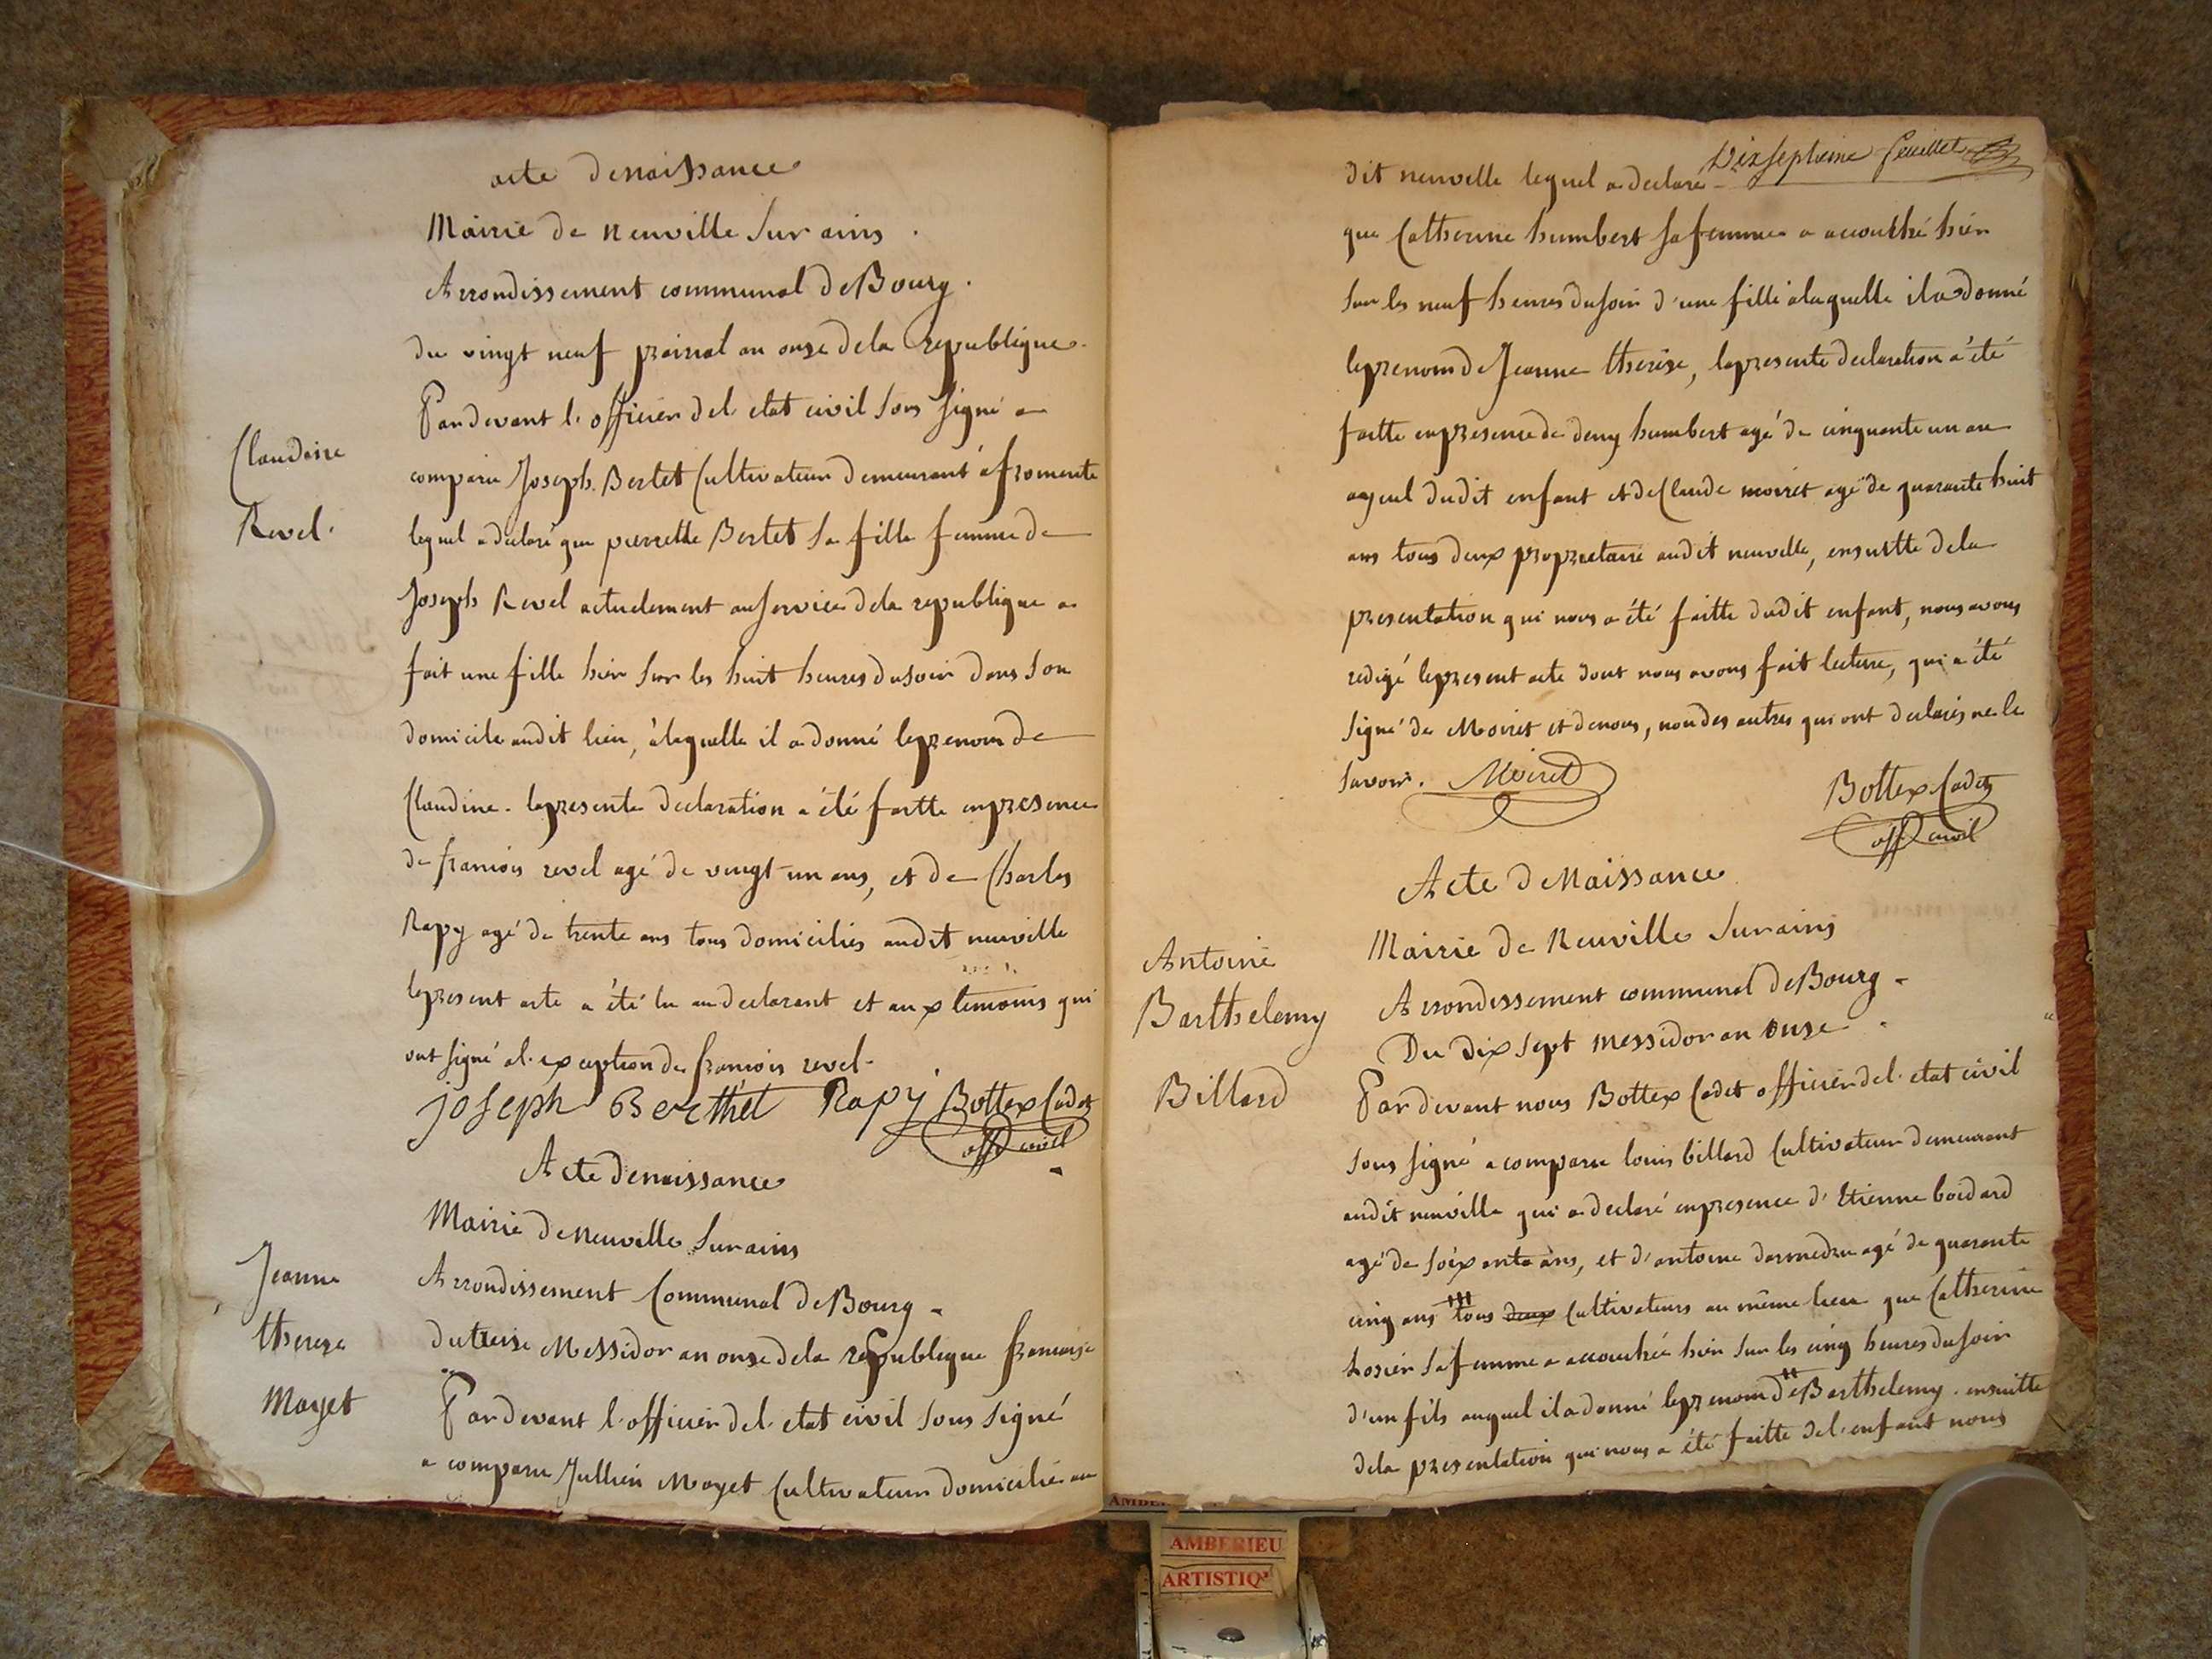 acte de naissance
Mairie de neuville sur ains.
Arrondissement communal de Bourg.
du vingt neuf prairial an onze de la republique.
Claudine
Revel.
Pardevant l'officier de l'etat civil sous signé a
comparu Joseph Bertet Cultivateur demeurant à fromente
lequel a declaré que pierrette Bertet sa fille femme de
Joseph Revel actuelement au service de la republique a
fait une fille hier sur les huit heures du soir dans son
domicile audit lieu, à laquelle il a donné le prenom de
Claudine. la presente declaration a été faitte en presence
de francois revel agé de vingt-un ans, et de Charles
Rapy agé de trente ans tous domiciliés audit neuville
le present acte a été lu au declarant et aux temoins qui
ont signé al'exception de francois revel.
joseph Berthet Rapy Bottex Cadet
off civil
Acte de naissance
Mairie de Neuville sur ains
Arrondissement Communal de Bourg.
Jeanne
therese
Moyet
du treise Messidor an onze de la republique francaise
Pardevant l'officier de l'etat civil sous signé
a comparu Jullien Moyet Cultivateur domicilié au
Dixseptieme feuillet
dit neuville lequel a declaré
que Catherine humbert sa femme a accouché hier
sur les neuf heures du soir d'une fille a laquelle il a donné
le prenom de Jeanne therèse, la presente declaration a été
faitte en presence de deny humbert agé de cinquante un an
ayeul dudit enfant et de Claude moiret agé de quarante huit
ans tous deux proprietaire audit neuville, ensuitte de la
presentation qui nous a été faitte dudit enfant, nous avons
redigé le present acte dont nous avons fait lecture, qui a été
signé de Moiret et de nous, non des autres qui ont declarés ne le
savoir. Moiret
Bottex Cadet
off civil
Acte de Naissance
Mairie de Neuville sur ains
Arrondissement communal de Bourg.
Du dix sept messidor an onze.
Antoine
Barthelemy
Billard
Pardevant nous Bottex Cadet officier de l'etat civil
sous signé a comparu louis billard Cultivateur demeurant
audit neuville qui a declaré en presence d'Etienne
agé de soixante ans, et d'antoine agé de quarante
cinq ans tous deux Cultivateurs au même lieu que Catherine
sa femme a accouchée hier sur les cinq heures du soir
d'un fils auquel il a donné le prenom de Barthelemy. ensuitte
de la presentation qui nous a été faitte de l'enfant nous
AMBERIEU
ARTISTIQ